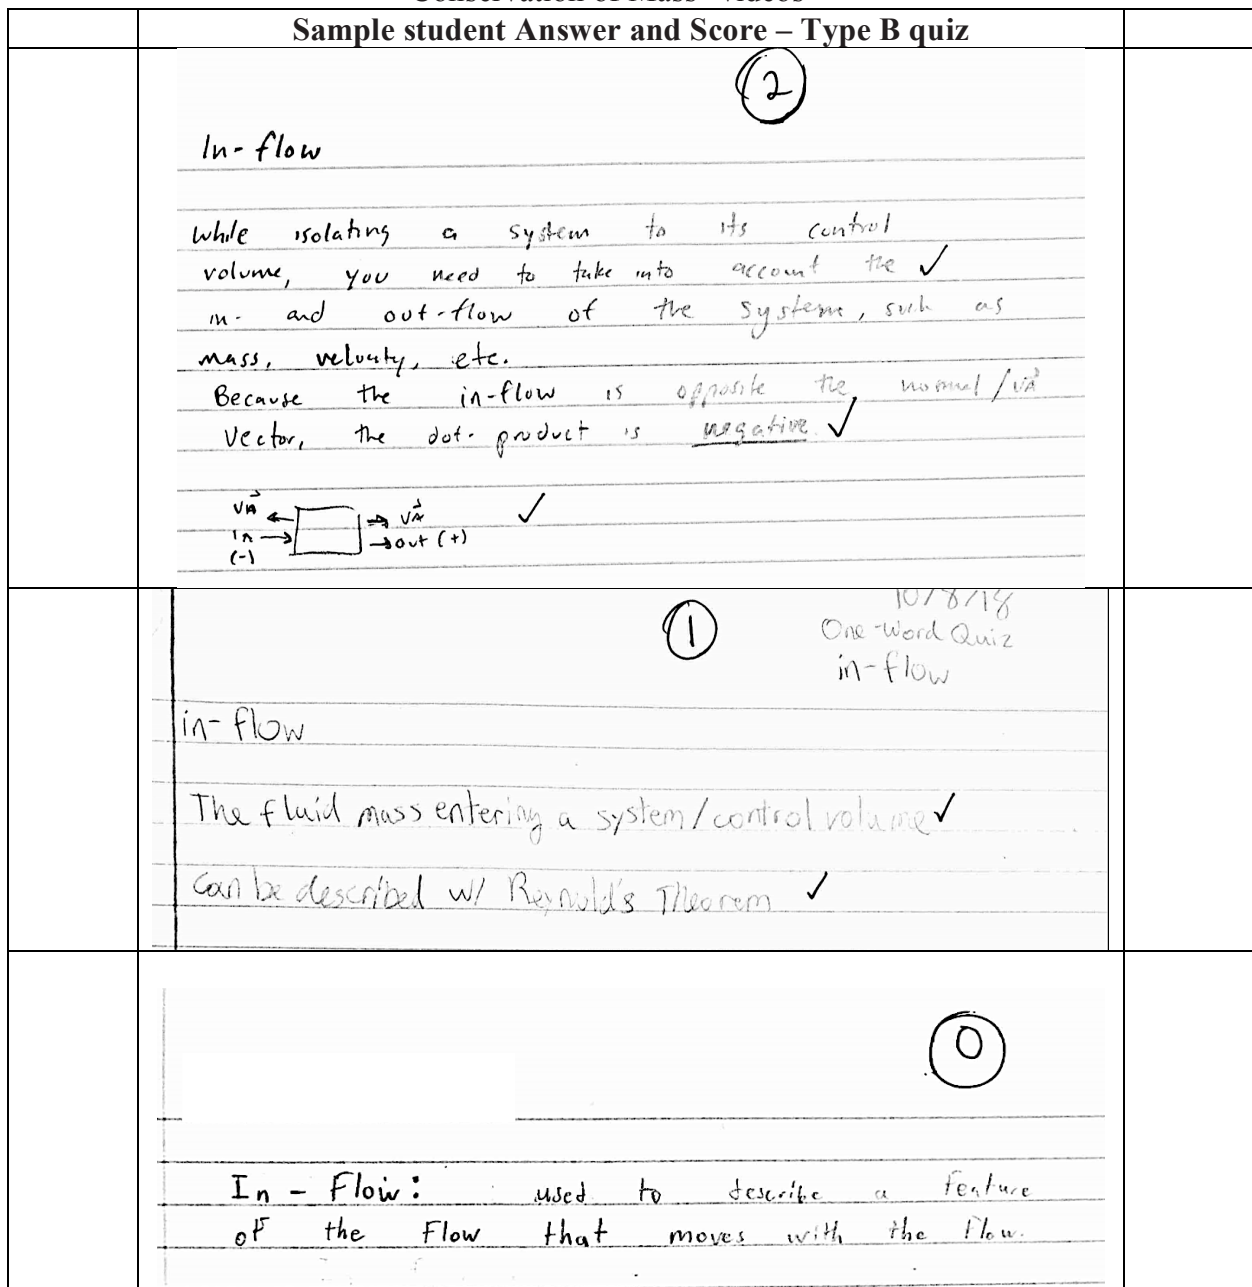 Sample student Answer and Score – Type B quiz
2
In-flow
While isolating a system to its control
volume, you need to take into account the ✓
in- and out-flow of the system, such as
mass, velocity, etc.
Because the in-flow is opposite the normal/VA⃗
Vector, the dot-product is negative ✓
VA⃗ VA⃗ ✓
In out (+)
(-)
1
10/8/18
One-Word Quiz
in-flow
in-flow
The fluid mass entering a system/control volume ✓
Can be described w/ Reynold's Theorem ✓
0
In-Flow: used to describe a feature
of the Flow that moves with the Flow.